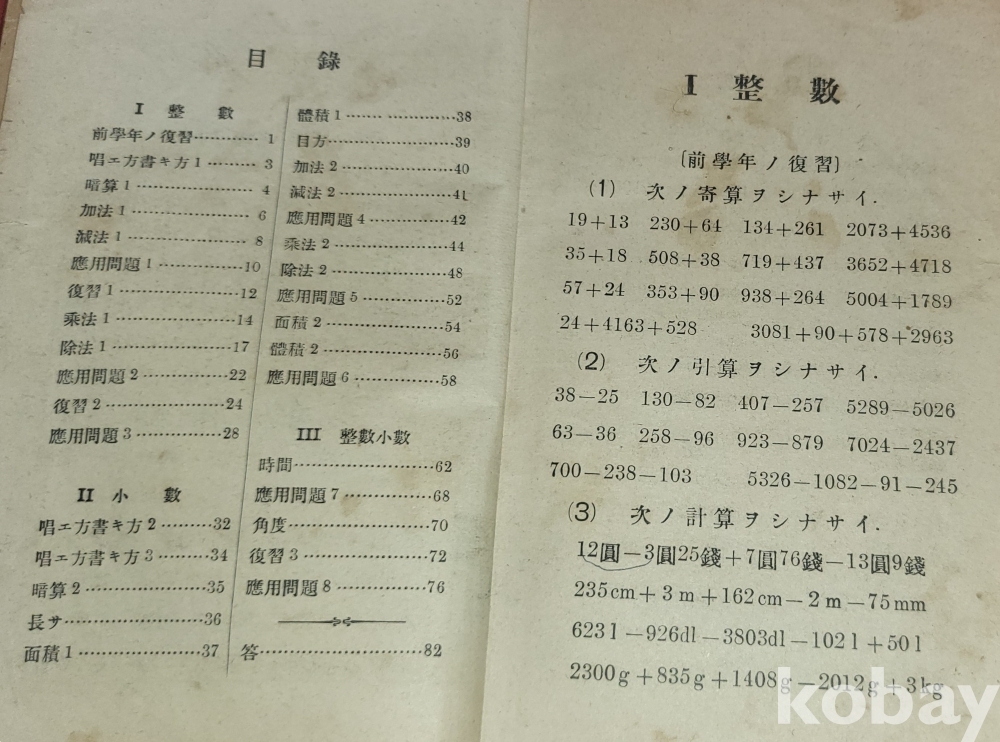 目錄
I 整數
前學年ノ復習‥‥‥‥1
唱エ方書キ方1‥‥‥‥3
暗算1‥‥‥‥4
加法1‥‥‥‥6
減法1‥‥‥‥8
應用問題1‥‥‥‥10
復習1‥‥‥‥12
乘法1‥‥‥‥14
除法1‥‥‥‥17
應用問題2‥‥‥‥22
復習2‥‥‥‥24
應用問題3‥‥‥‥28
II 小數
唱エ方書キ方2‥‥‥‥32
唱エ方書キ方3‥‥‥‥34
暗算2‥‥‥‥35
長サ‥‥‥‥36
面積1‥‥‥‥37
體積1‥‥‥‥38
目方‥‥‥‥39
加法2‥‥‥‥40
減法2‥‥‥‥41
應用問題4‥‥‥‥42
乘法2‥‥‥‥44
除法2‥‥‥‥48
應用問題5‥‥‥‥52
面積2‥‥‥‥54
體積2‥‥‥‥56
應用問題6‥‥‥‥58
III 整數小數
時間‥‥‥‥62
應用問題7‥‥‥‥68
角度‥‥‥‥70
復習3‥‥‥‥72
應用問題8‥‥‥‥76
答‥‥‥‥82
I 整數
〔前學年ノ復習〕
(1) 次ノ寄算ヲシナサイ.
19+13 230+64 134+261 2073+4536
35+18 508+38 719+437 3652+4718
57+24 353+90 938+264 5004+1789
24+4163+528 3081+90+578+2963
(2) 次ノ引算ヲシナサイ.
38-25 130-82 407-257 5289-5026
63-36 258-96 923-879 7024-2437
700-238-103 5326-1082-91-245
(3) 次ノ計算ヲシナサイ.
12圓-3圓25錢+7圓76錢-13圓9錢
235cm+3m+162cm-2m-75mm
623l-926dl-3803dl-102l+50l
2300g+835g+1408g-2012g+3kg
kobay